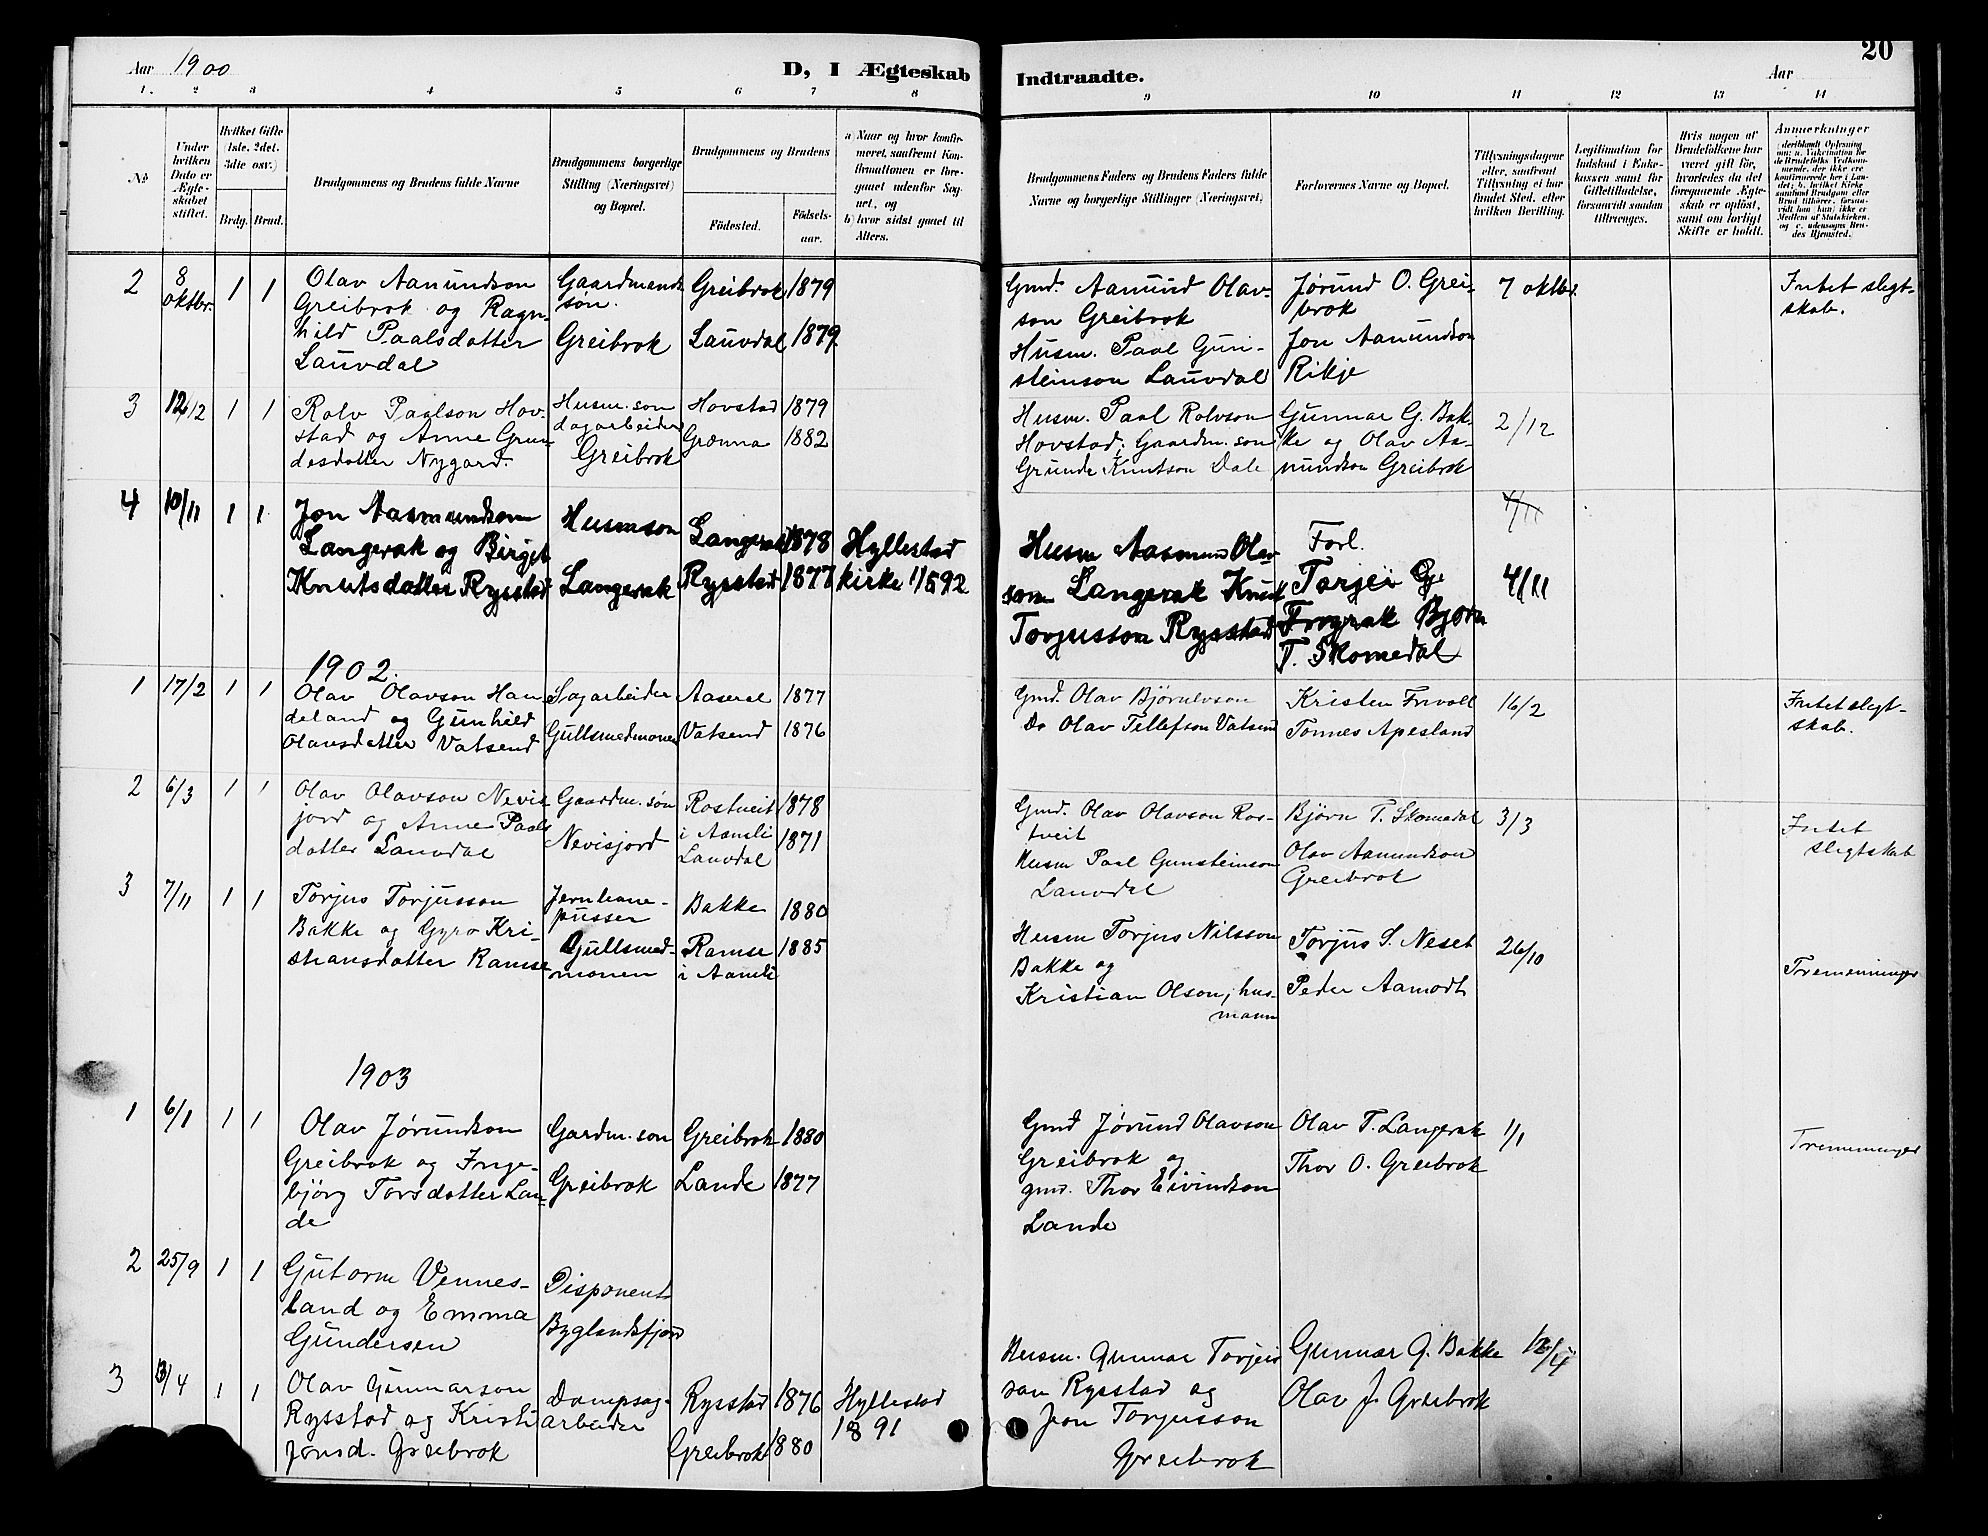 20
Aar 1900
D, I Ægteskab
Indtraadte.
Aar
1. 2 3 4 5 6 7 8
9 10 11 12 13 14
No
Under hvilken Dato er Ægteskabet stiftet.
Hvilket Gifte (1ste. 2det. 3die osv.)
Brdg. Brud.
Brudgommens og Brudens fulde Navne
Brudgommens borgerlige Stilling (Næringsvei) og Bopæl.
Brudgommens og Brudens
Födested.
Födselsaar.
a) Naar og hvor konfirmeret, saafremt Konfirmationen er foregaaet udenfor Sognet, og
b) hvor sidst gaaet til Alters.
Brudgommens Faders og Brudens Faders fulde Navne og borgerlige Stillinger (Næringsvei)
Forlovernes Navne og Bopæl.
Tillysningsdagene eller, saafremt Tillysning ei har fundet Sted, efter hvilken Bevilling.
Legitimation for Indskud i Enkekassen samt for Giftetilladelse, forsaavidt saadan tiltrænges.
Hvis nogen af Brudefolkene har været gift før, hvorledes da det foregaaende Ægteskab er oplöst, samt om lovligt Skifte er holdt.
Anmærkninger
2 8 oktbr. 1 1
Olav Aanundson
Greibrok og Ragn-
hild Paalsdatter
Lauvdal
Gaardmands
søn.
Greibrok
Greibrok 1879
Lauvdal 1879
Gmd. Aanund Olav-
son Greibrok
Husm. Paal Gun-
steinson Lauvdal
Jørund O. Grei-
brok
Jon Aanundson
Rikje
7 oktbr.
Intet slegt-
skab.
3 12/12 1 1
Rolv Paalson Hov-
stad og Anne Grun-
desdatter Nygard.
Husm. son
dagarbeider
Greibrok
Hovstad 1879
Grænna 1882
Husm. Paal Rolvson
Hovstad; Gaardm. son
Grunde Knutson Dale
Gunnar G. Bak-
ke og Olav Aa-
nundson Greibrok
2/12
4 10/11 1 1
Jon Aasmundson
Langerak og Birget
Knutsdatter Rysstad
Husmson
Langerak
Langerak 1878
Rysstad 1877
Hyllestad
kirke 1/5 92
Husm Aasmund Olav-
son Langerak Knut
Torjusson Rysstad
Forl.
Torjei G.
Frøyrak Bjørn
T. Skomedal
4/11
4/11
1902.
1 17/2 1 1
Olav Olavson Han
deland og Gunhild
Olavsdatter Vatsend
Sagarbeider
Gullsmedmonen
Aaseral 1877
Vatsend 1876
Gmd. Olav Bjørnlvson
Do Olav Tellefson Vatsend
Kristen Frivoll
Tønnes Apesland
16/2
Intet slegt-
skab.
2 6/3 1 1
Olav Olavson Nevis
jord og Anne Paals
datter Lauvdal
Gaardm. søn
Nevisjord
Rostveit 1878
i Aamli
Lauvdal 1871
Gmd. Olav Olavson Ros-
tveit
Husm Paal Gunsteinson
Lauvdal
Bjørn T. Skomedal
Olav Aanundson
Greibrok
3/3
Intet
slegtskab
3 7/11 1 1
Torjus Torjusson
Bakke og Gyro Kri-
stiansdatter Ramse
Jernbane-
pusser
Gullsmed-
monen
Bakke 1880
Ramse 1885
i Aamli
Husm Torjus Nilsson
Bakke og
Kristian Olson, hus-
mann
Torjus S. Neset
Peder Aamodt
26/10
Tremenninger
1903
1 6/1 1 1
Olav Jørundson
Greibrok og Inge-
björg Torsdatter Lan-
de
Gardm. son
Greibrok
Greibrok 1880
Lande 1877
Gmd Jørund Olavson
Greibrok og
gmd. Thor Eivindson
Lande
Olav T. Langerak
Thor O. Greibrok
1/1
Tremenninger
2 25/9 1 1
Gutorm Vennes-
land og Emma
Gundersen
Disponent
Byglandsfjord
3 13/4 1 1
Olav Gunnarson
Rysstad og Kristi
Jonsd. Greibrok
Dampsag-
arbeider
Rysstad 1876
Greibrok 1880
Hyllestad
1891
Husm. Gunnar Torjeis
son Rysstad og
Jon Torjusson
Greibrok
Gunnar G. Bakke
Olav J. Greibrok